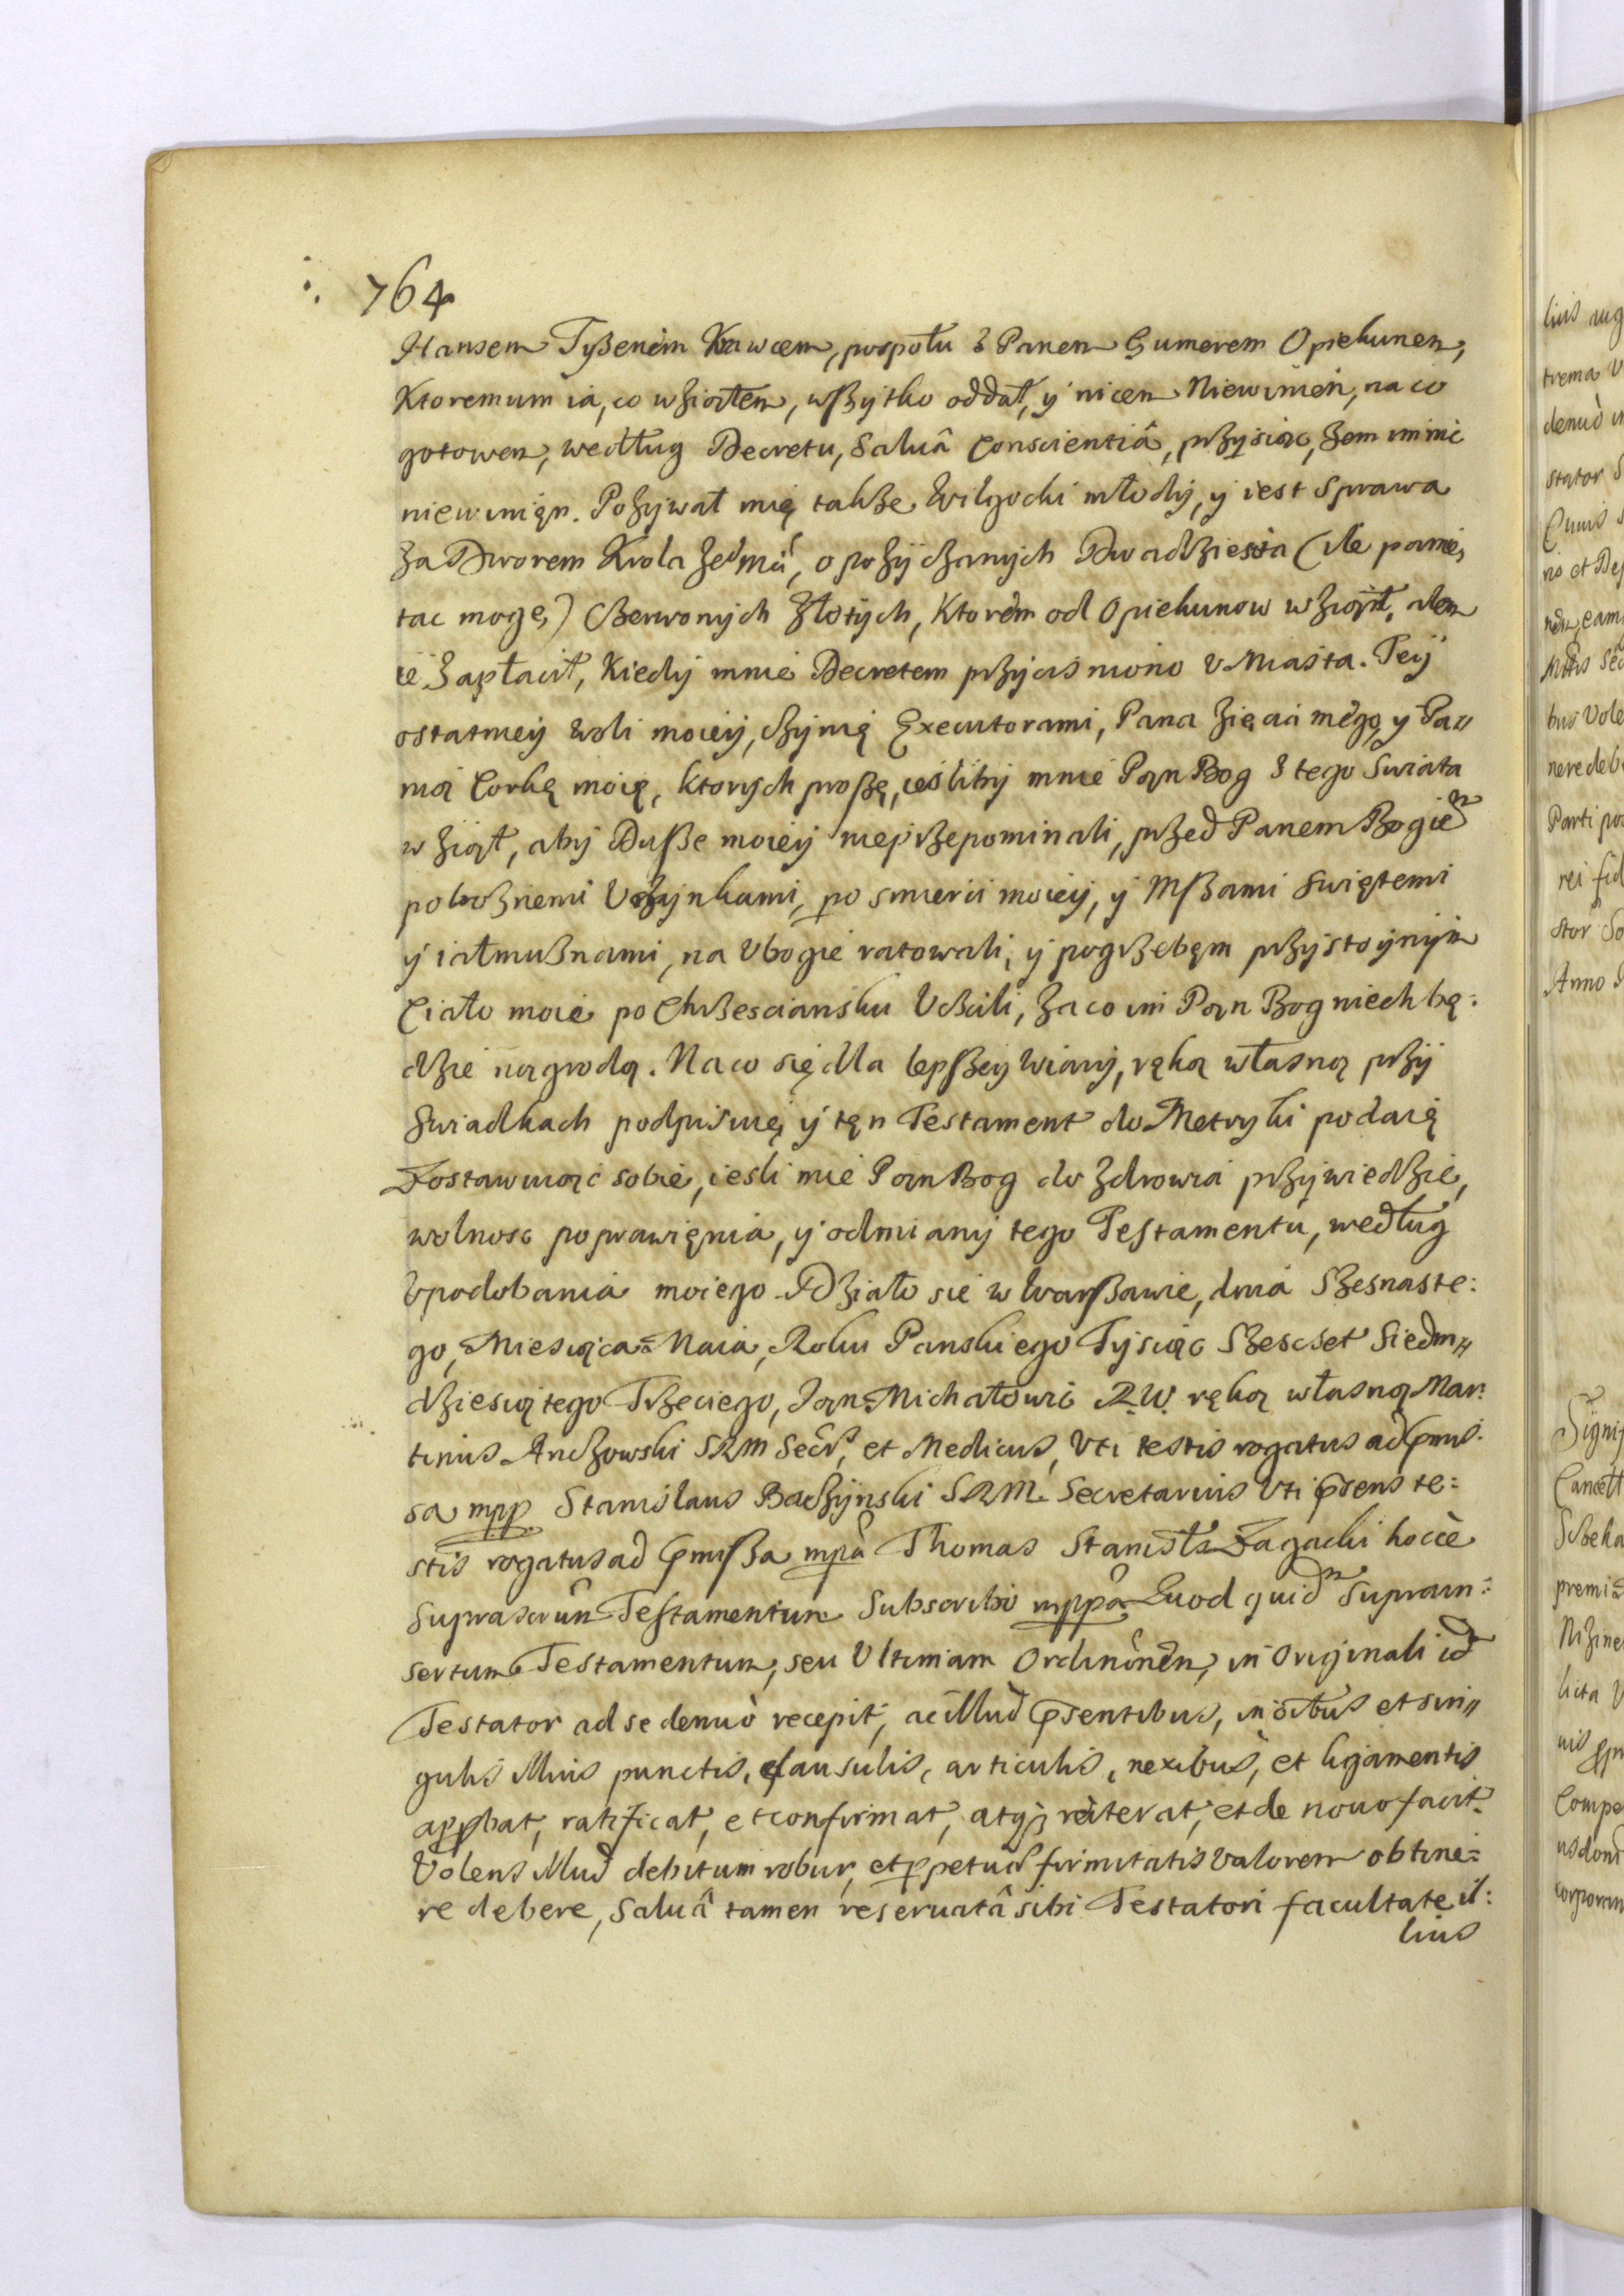 764
Hansem Tyßenem Krawcem, pospołu z Panem Gumerem Opiekunem,
Ktoremum ia, co wziąłem, wszytko oddał, y nicem Niewinien, na co
gotowem, według Decretu, Saluâ Conscientiâ, przysiąc, żem im nic
niewinięn. Pozywał mię także Wilgocki młody, y iest Sprawa
za Dworem Krola Jeo Mci, o pożyczanych Dwadziescia (ile pamię,
tac mogę,) Czerwonych Złotych, Ktorem od Opiekunow wziął, alem
ie Zapłacił, Kiedy mnie Decretem przycisniono v Miasta. Tey
ostatniey woli moiey, czynię Executorami, Pana Zięcia mego, y Pa„
nią Corkę moię, ktorych proszę, iesliby mnie Pąn Bog z tego Swiata
wziął, aby Dusze moiey nieprzepominali, przed Panem Bogiem
pobożnemi Vczynkami, po smierci moiey, y Mszami Swiętemi
y iałmużnami, na Vbogie ratowali, y pogrzebęm przystoynym
Ciało moie po Chrzesciansku Vczcili, za co im Pąn Bog niech bę:
dzie nagrodą. Na co się dla lepszey wiary, ręką własną przy
Swiadkach podpisuię, y tęn Testament do Metryki podaię
Zostawuiąc sobie, iesli mie Pąn Bog do Zdrowia przywiedzie,
wolnosc poprawięnia, y odmiany tego Testamentu, według
Vpodobania moiego. Działo się w Warszawie, dnia Szesnaste:
go, Miesiąca Maia, Roku Panskiego Tysiąc Szescset Siedm„
dziesiątego Trzeciego, Jąn Michałowic R. W. ręką własną Mar:
tinus Anczowski SRM Secrs, et Medicus, Vti testis rogatus ad pmis:
sa mpp. Stanislaus Baczynski SRM. Secretarius Vti psens te:
stis rogatus ad pmissa mpa Thomas Stanisł. Zagacki hocce
suprascrūn Testamentum Subscribo mppa. Quod quid Suprain:
sertum Testamentum, seu Vltimam Ordinōnem, in Originali id
Testator ad se denuò recepit, ac illud psentibus, in oībus et sin„
gulis illius punctis, clausulis, articulis, nexibus, et ligamentis
approbat, ratificat, et confirmat, atq. reiterat, et de nouo facit.
Volens illud debitum robur, et perpetuae firmitatis valorem obtine:
re debere, Saluâ tamen reseruatâ sibi Testatori facultate il:
lius